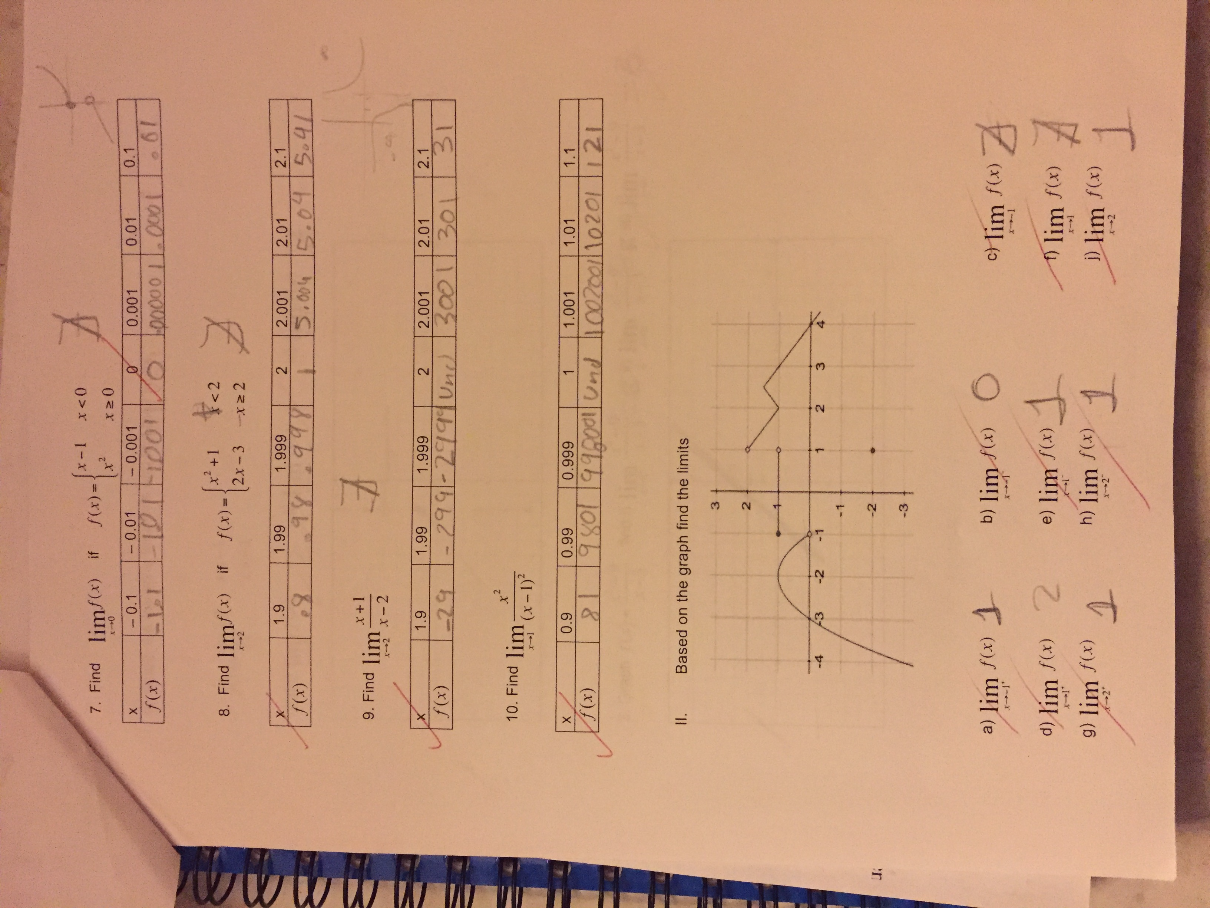 7. Find lim x→0 f(x) if f(x) = { x − 1 x < 0
x² x ≥ 0 ∄
x − 0.1 − 0.01 − 0.001 0 0.001 0.01 0.1
f(x) −1.1 −1.01 −1.001 0 .000001 .0001 .01
8. Find lim x→2 f(x) if f(x) = { x² + 1 x < 2
2x − 3 x ≥ 2 ∄
x 1.9 1.99 1.999 2 2.001 2.01 2.1
f(x) .8 .98 .998 1 5.004 5.04 5.41
9. Find lim x→2 (x + 1)/(x − 2) ∄
x 1.9 1.99 1.999 2 2.001 2.01 2.1
f(x) −29 −299 −2999 Und 3001 301 31
10. Find lim x→1 x²/(x − 1)²
x 0.9 0.99 0.999 1 1.001 1.01 1.1
f(x) 81 9801 998001 Und 1002001 10201 121
II. Based on the graph find the limits
3
2
1
-4 -3 -2 -1 1 2 3 4
-1
-2
-3
a) lim x→−1⁺ f(x) 1 b) lim x→−1⁻ f(x) 0 c) lim x→−1 f(x) ∄
d) lim x→1⁺ f(x) 2 e) lim x→1⁻ f(x) 1 f) lim x→1 f(x) ∄
g) lim x→2⁺ f(x) 1 h) lim x→2⁻ f(x) 1 j) lim x→2 f(x) 1